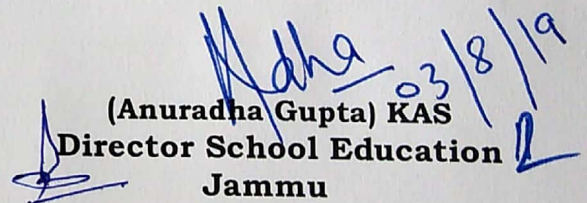 03/8/19
(Anuradha Gupta) KAS
Director School Education
Jammu